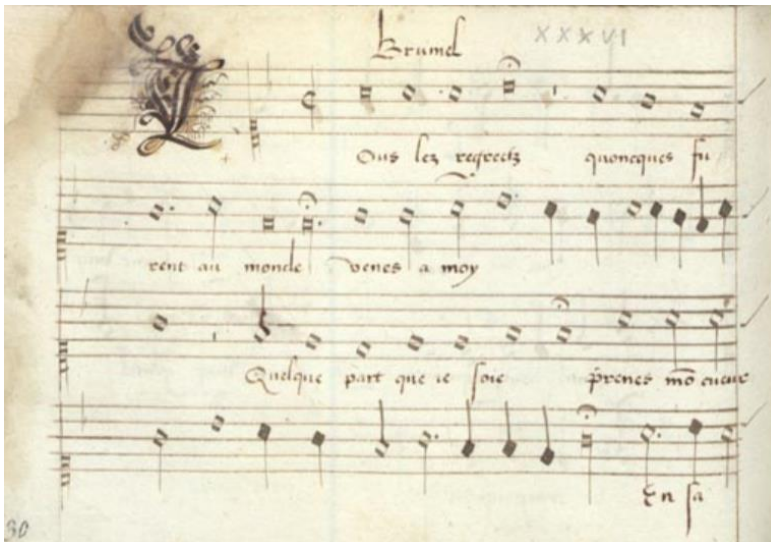 Brumel
XXXVI
Tous lez regretz quoncques fu
rent au monde venes a moy
Quelque part que ie soie prenes mō cueur
En sa
30